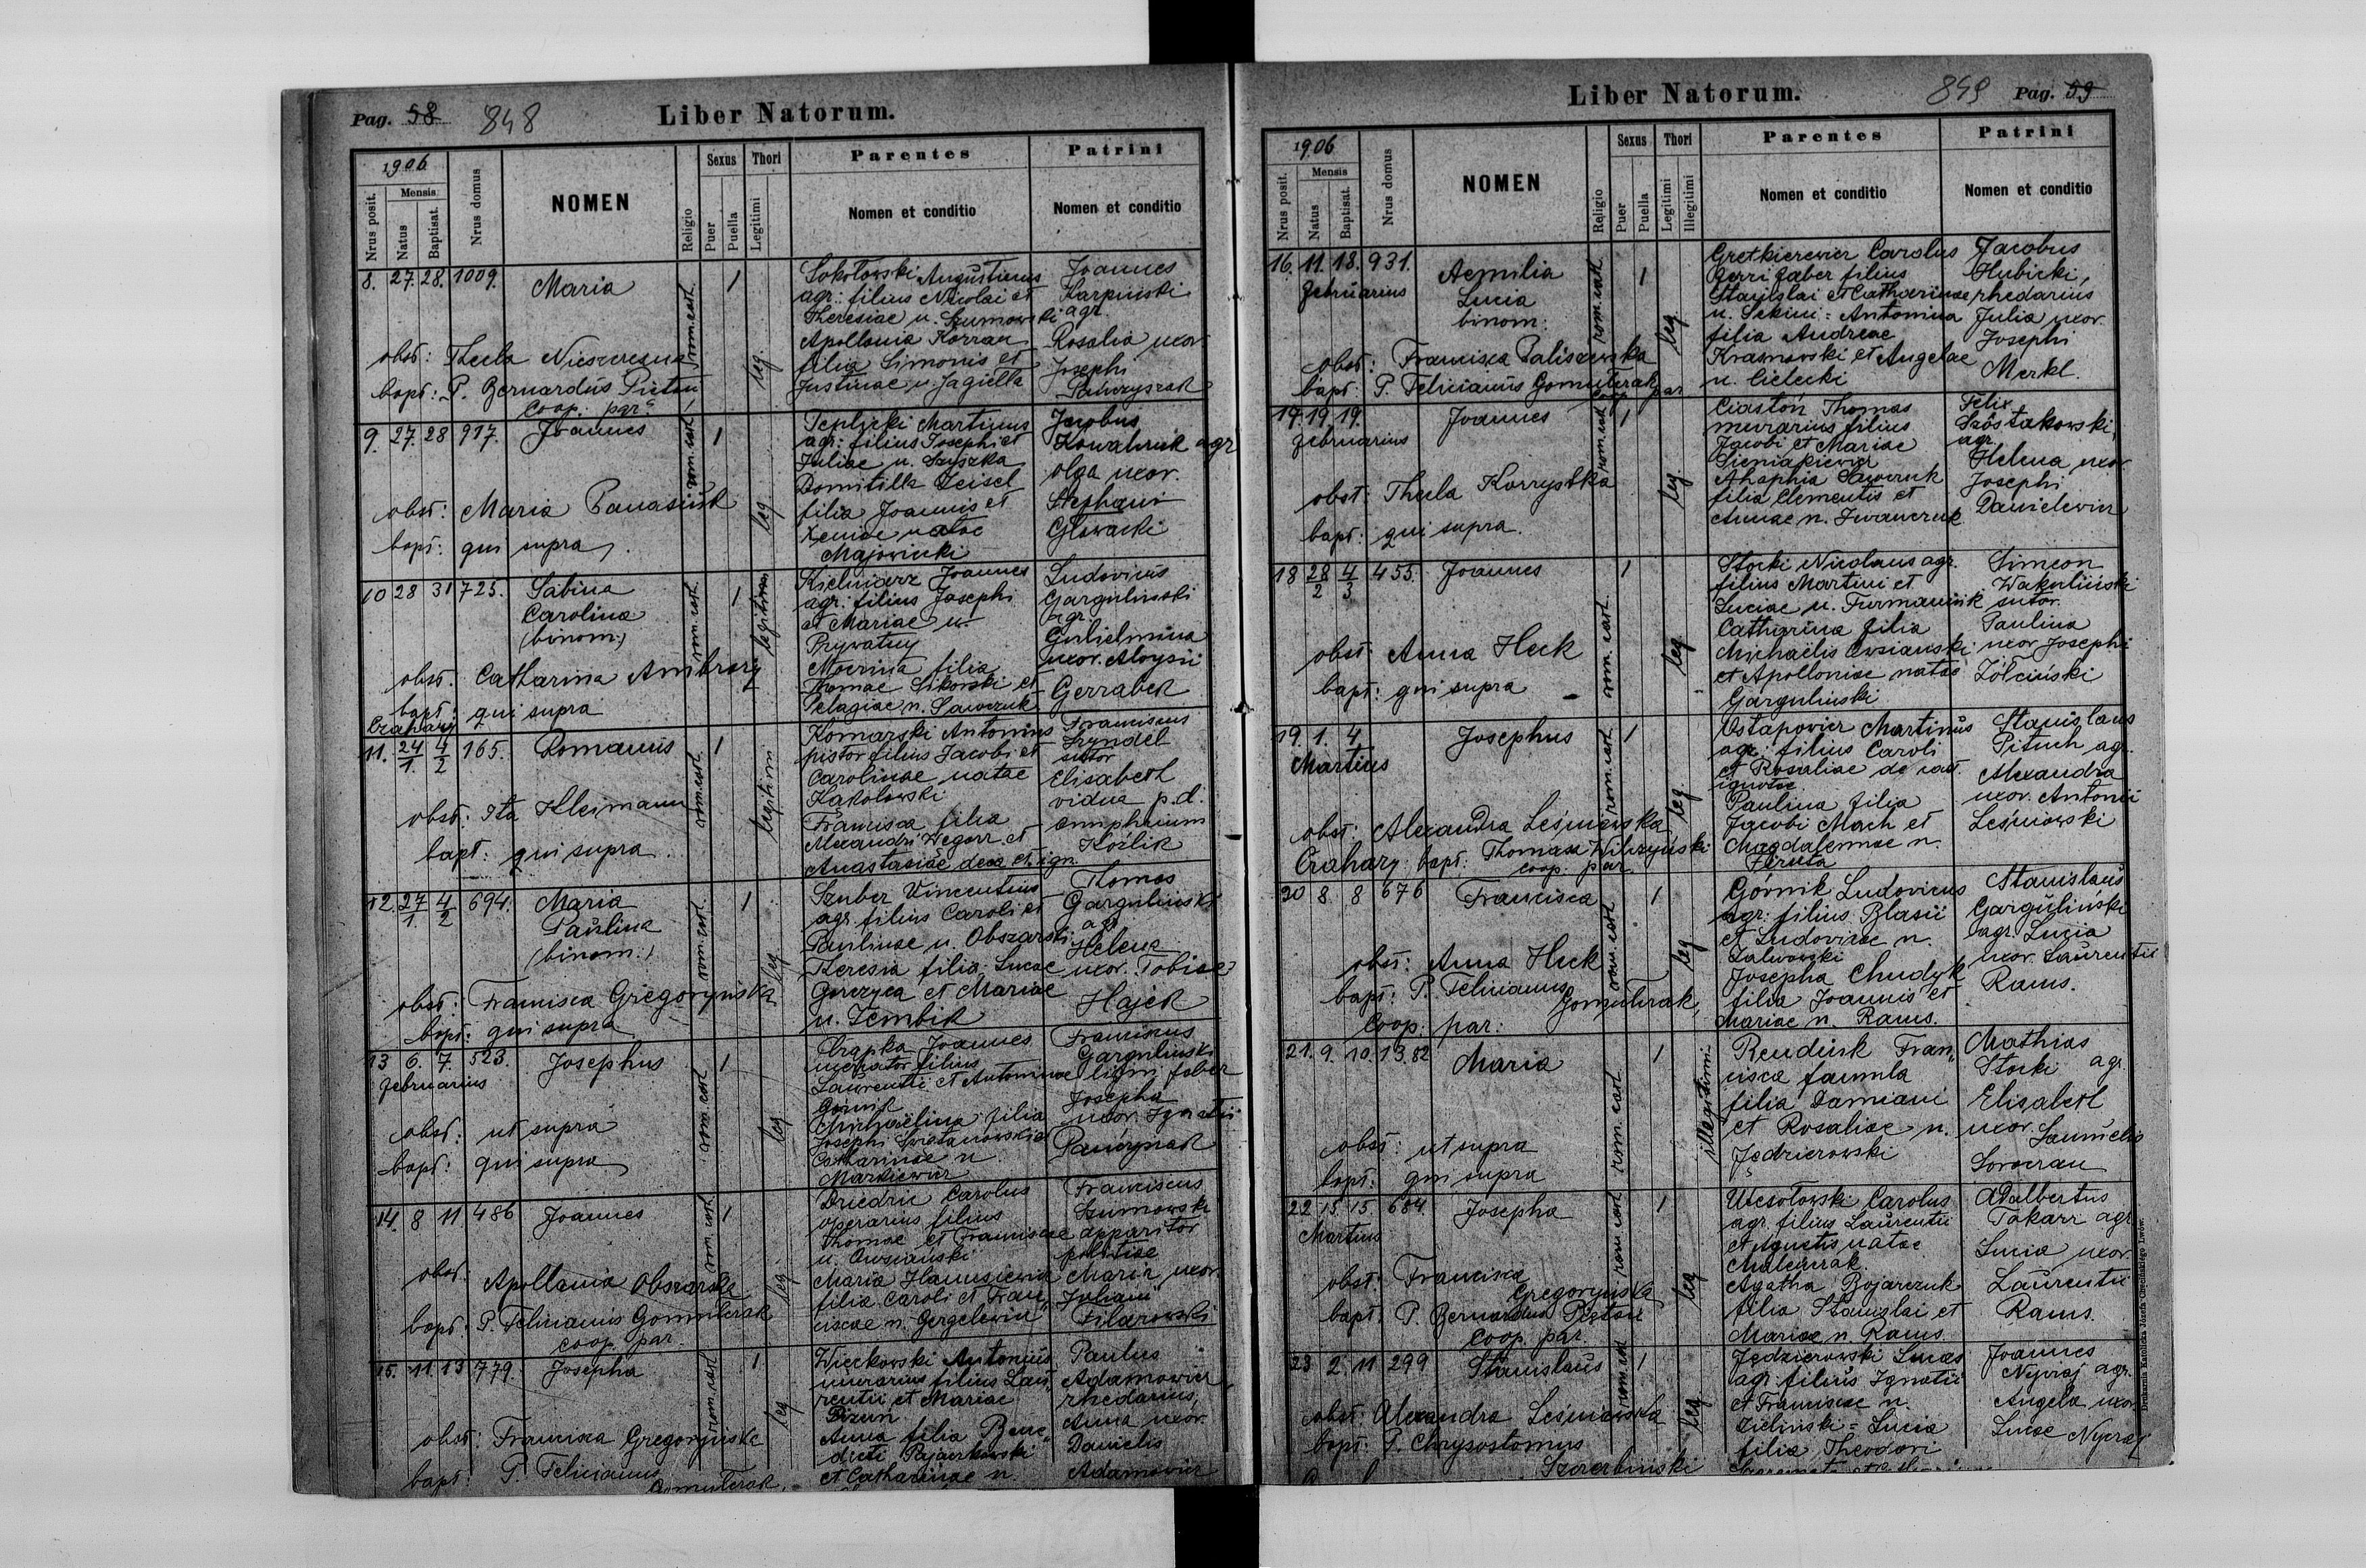 Pag. 58 848 Liber Natorum.
1906
Nrus posit.
Mensis
Natus
Baptisat.
Nrus domus
NOMEN
Religio
Sexus
Puer
Puella
Thori
Legitimi
Parentes
Nomen et conditio
Patrini
Nomen et conditio
8. 27. 28. 1009. Maria
rom. cath.
1
leg.
obst: Thecla
bapt: P. Bernardus Pieton
coop. par.
Sokołowski Augustinus
agr: filius Nicolai et
Theresiae n. Szumowski
Apollonia Korzan
filia Simonis et
Justinae n. Jagiełła
Joannes
Karpiński
agr.
Rosalia uxor
Josephi
9. 27. 28 917. Joannes
rom. cath.
1
leg
obst: Maria Panasiuk
bapt: qui supra
Teplicki Martinus
agr: filius Josephi et
Juliae n. Szyszka
Domitilla Zeisel
filia Joannis et
Xeniae natae
Majowicki
Jacobus
Kowalczuk agr
Olga uxor.
Stephani
Głowacki
10 28 31 725. Sabina
Carolina
(binom:)
rom. cath.
1
legitim
obst. Catharina Ambroży
bapt: qui supra
Kielniarz Joannes
agr: filius Josephi
et Mariae n.
Prywatny
filia
Thomae Sikorski et
Pelagiae n. Sawczuk
Ludovicus
Garguliński
agr.
Gulielmina
uxor. Aloysii
Gerzabek
Czahary
11. 24/1. 4/2 165. Romanus
rom. cath.
1
legitim
obst: Ita Kleimann
bapt: qui supra.
Komarski Antonius
pistor filius Jacobi et
Carolinae natae
Kąkolowski
Francisca filia
Alexandri Węgorz et
Anastasiae de ign.
Franciscus
Fryndel
sutor
Elisabeth
vidua p. d.
Koźlik
12. 27/1. 4/2 694. Maria
Paulina
(binom:)
rom. cath.
1
leg
obst: Francisca Gregoryńska
bapt: qui supra
Szuber Vincentius
agr. filius Caroli et
Paulinae n. Obszarski
Theresia filia Lucae
Gorczyca et Mariae
n. Zembik
Thomas
Garguliński
agr
Helena
uxor. Tobiae
Hajek
13 6. 7. 523. Josephus
Februarius
rom. cath
1
leg
obst: ut supra
bapt: qui supra
Czapka Joannes
mercator filius
Laurentii et Antoninae
Górnik
Michaëlina filia
Josephi
Catharinae n
Markiewicz
Franciscus
Garguliński
lign. faber
Josepha
uxor. Ignatii
14. 8 11 486 Joannes
rom. cath
1
leg.
obst. Apollonia Obszarska
bapt: P. Felicianus Gomułczak
coop. par.
Dziedzic Carolus
operarius filius
Thomae et Franciscae
n. Owsiański
Maria Hanusiewicz
filia Caroli et Fran„
ciscae n. Gergelewicz
Franciscus
Szumowski
apparitor
politiae
Maria uxor.
Juliani
Filarowski
15. 11. 13 779. Josepha
rom. cath
1
leg
obst: Francisca Gregoryńska
bapt: P. Felicianus
Gomułczak
Wieckowski Antonius
murarius filius Lau„
rentii et Mariae
Bizun
Anna filia Bene„
dicti Pajączkowski
et Catharinae n.
Paulus
Adamowicz
rhedarius,
Anna uxor.
Danielis
Adamowicz
Liber Natorum. 849 Pag. 59
1906
Nrus posit.
Mensis
Natus
Baptisat.
Nrus domus
NOMEN
Religio
Sexus
Puer
Puella
Thori
Legitimi
Illegitimi
Parentes
Nomen et conditio
Patrini
Nomen et conditio
16. 11. 18. 931. Aemilia
Februarius
Lucia
binom:
rom. cath.
1
leg
obst: Francisca Paliszewska
bapt: P. Felicianus Gomułczak
coop par
Gretkierewicz Carolus
ferri faber filius
Stanislai et Catharinae
n. Sekini = Antonina
filia Andreae
Krasnowski et Angelae
n. Cielecki
Jacobus
Hubicki,
rhedarius
Julia uxor.
Josephi
Merkl.
17. 19. 19. Joannes
Februarius
rom. cath
1
leg.
obst: Thecla Korzystka
bapt: qui supra.
Ciastoń Thomas
murarius filius
Jacobi et Mariae
Sieniakiewicz
Ahaphia Sawczuk
filia Clementis et
Annae n. Iwanczuk
Felix
Szóstakowski,
agr.
Helena uxor
Josephi
Danielewicz
18 28/2 4/3 455. Joannes
rom. cath.
1
leg
obst: Anna Heck
bapt: qui supra
Stocki Nicolaus agr.
filius Martini et
Luciae n. Furmaniuk
Catharina filia
Michaëlis Owsiański
et Apolloniae natae
Garguliński
Simeon
Wakuliński
sutor.
Paulina
uxor Josephi
Żółciński
19. 1. 4 Josephus
Martius
rom. cath
1
leg
obst: Alexandra Leśniewska
Czahary. bapt: Thomas Wilczyński
coop. par.
Ostapowicz Martinus
agr: filius Caroli
et Rosaliae de nat.
ignotae.
Paulina filia
Jacobi Mach et
Magdalenae n.
Firuta
Stanislaus
Pituch agr.
Alexandra
uxor. Antonii
Leśniowski
20 8 8 676 Francisca
rom. cath
1
leg
obst: Anna Heck
bapt: P. Felicianus
Gomułczak,
coop. par.
Górnik Ludovicus
agr: filius Blasii
et Ludovicae n.
Zalwowski
Josepha Chudyk
filia Joannis et
Mariae n. Rams.
Stanislaus
Garguliński
agr. Lucia
uxor. Laurentii
Rams.
21. 9. 10. 1382 Maria
rom. cath.
1
illegitimi.
obst: ut supra
bapt: qui supra
Rendiuk Fran„
cisca famula
filia Damiani
et Rosaliae n.
Jędzierowski
Mathias
Stocki agr
Elisabeth
uxor. Samuelis
22 15. 15. 684 Josepha
Martius
rom. cath
1
leg
obst: Francisca
Gregoryńska
bapt: P. Bernardus Pieton
coop. par.
Wesołowski Carolus
agr. filius Laurentii
et Agnetis natae
Agatha Bojarczuk
filia Stanislai et
Mariae n. Rams.
Adalbertus
Tokarz agr
Lucia uxor
Laurentii
Rams.
23 2. 11 299 Stanislaus
rom. cath
1
leg
obst: Alexandra Leśniewska
bapt: P. Chrysostomus
Szczerbiński
Jędzierowski Lucas
agr. filius Ignatii
et Franciscae n.
Zieliński = Lucia
filia Theodori
Joannes
Nycz agr.
Angela uxor
Lucae
Drukarnia Karolicka Józefa Chęcińskiego Lwów.